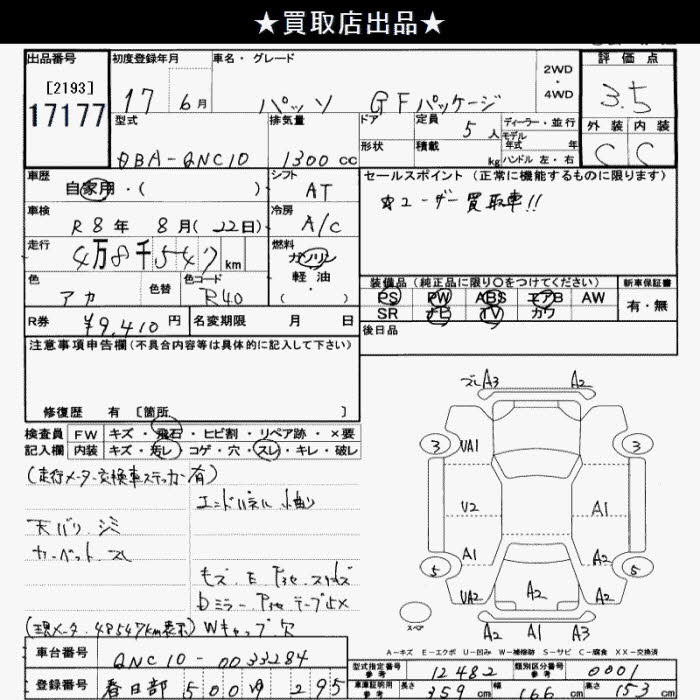 ★買取店出品★
出品番号 初度登録年月 車名・グレード 2WD・4WD 評価点
[2193]
17177
17年 6月 パッソ GFパッケージ 3.5
型式 排気量 ドア 定員 5人 ディーラー・並行 外装 内装
モデル年式 年
DBA-QNC10 1300cc 形状 積載 kg ハンドル 左・右 C C
車歴 シフト セールスポイント(正常に機能するものに限ります)
自家用・( ) AT ☆ユーザー買取車!!
車検 冷房
R8年 8月(22日) A/C
走行 燃料
4万8千547km ガソリン
軽油
・( )
色 色替 色コード
アカ R40
装備品(純正品に限り○をつけてください) 新車保証書
PS PW ABS エアB AW 有・無
SR ナビ TV カワ
R券 ¥9,410円 名変期限 月 日 後日品
注意事項申告欄(不具合内容等は具体的に記入して下さい)
修復歴 有 [箇所 ]
検査員 FW キズ・飛石・ヒビ割・リペア跡・×要
記入欄 内装 キズ・汚レ・コゲ・穴・スレ・キレ・破レ
(走行メータ交換車ステッカー有)
エンドパネル 曲り
天バリ シミ
カーペット スレ
(現メータ 48547km表示) Wキャップ欠
車台番号 QNC10-0033284
登録番号 春日部 500 ゆ 295
A3 A2
3 UA1 3
U2 A1
A1 A2
5 5
UA2 A2 A2
スペア A2 A1 A3
A-キズ E-エクボ U-凹み W-補修跡 S-サビ C-腐食 XX-交換済
型式指定番号 参考 12482 類別区分番号 参考 0001
車庫証明用 参考 長さ 359cm 幅 166cm 高さ 153cm